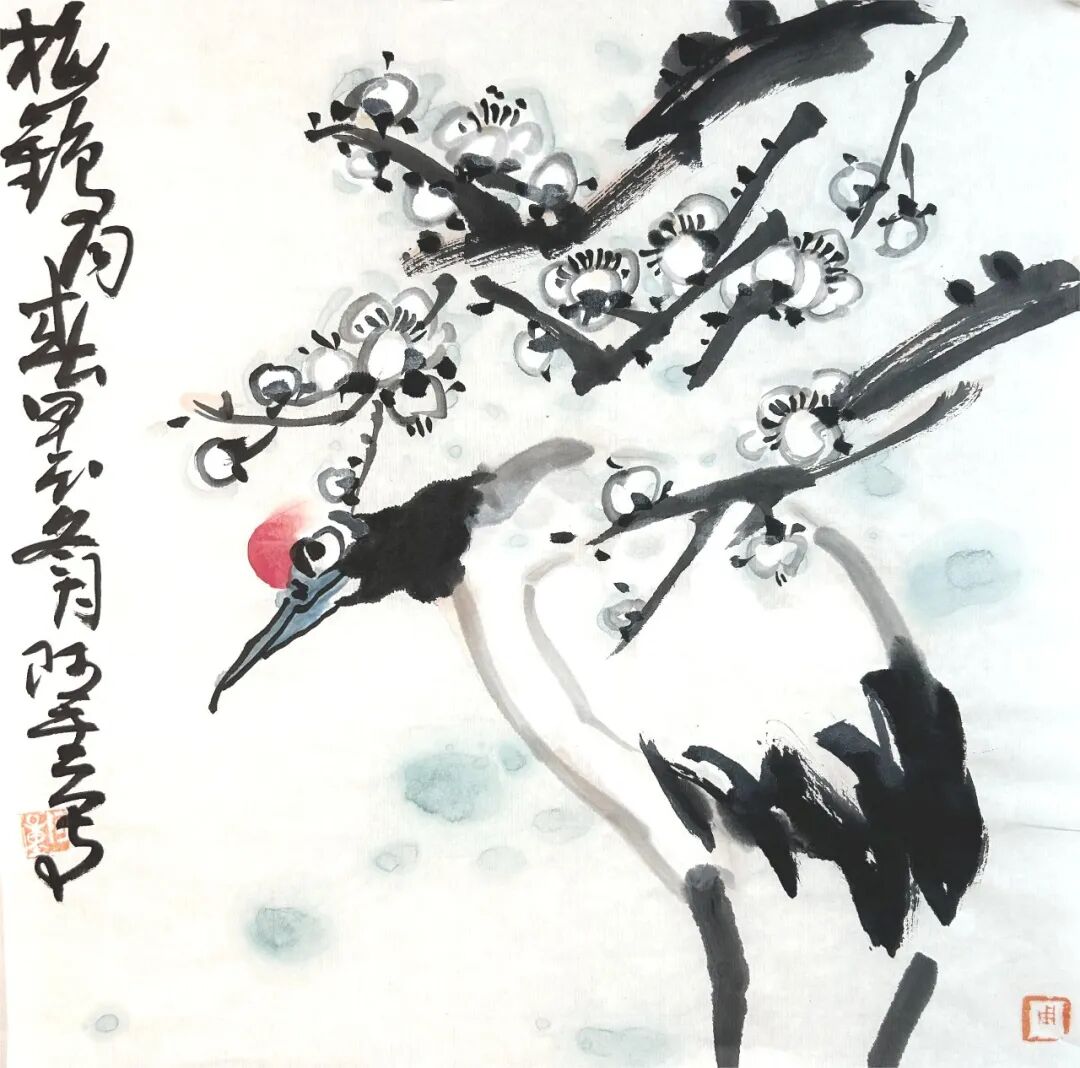 梅鹤同春甲辰冬月阿写